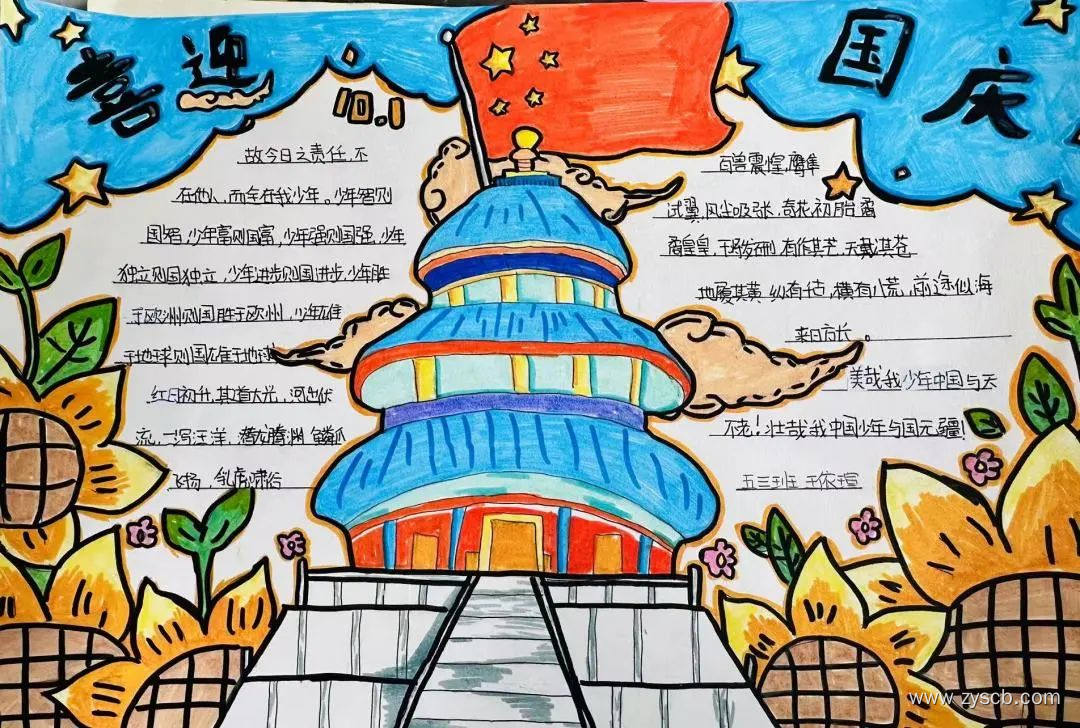 喜迎
国庆
10.1
故今日之责任,不
在他人,而全在我少年。少年智则
国智,少年富则国富,少年强则国强,少年
独立则国独立,少年进步则国进步,少年胜
于欧洲则国胜于欧洲,少年雄
于地球则国雄于地球
红日初升,其道大光,河出伏
流,一泻汪洋,潜龙腾渊,鳞爪
飞扬,乳虎啸谷
百兽震惶,鹰隼
试翼,风尘吸张,奇花初胎,矞
矞皇皇,干将发硎,有作其芒,天戴其苍
地履其黄,纵有千古,横有八荒,前途似海
来日方长。
美哉我少年中国与天
不老!壮哉我中国少年与国无疆!
五三班
www.zyscb.com